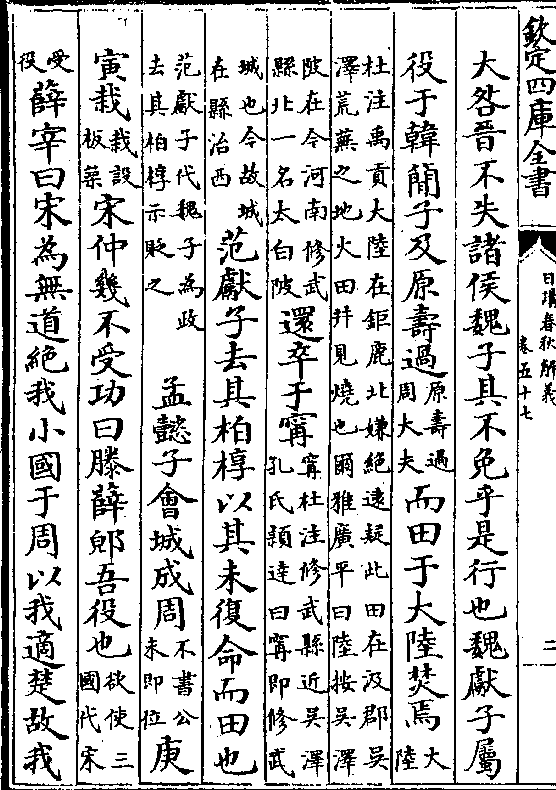 欽定四庫全書
日講春秋解義
卷五十七
二
大咎晉不失諸侯魏子其不免乎是行也魏獻子屬
役于韓簡子及原壽過原壽過周大夫而田于大陸焚焉大陸
杜注禹貢大陸在鉅鹿北嫌絶遠疑此田在汲郡吳
澤荒蕪之地火田并見燒也爾雅廣平曰陸按吳澤
陂在今河南修武縣北一名太白陂還卒于甯甯杜注修武縣近吳澤孔氏頴達曰甯即修武
城也今故城在縣治西范獻子去其柏椁以其未復命而田也
范獻子代魏子為政去其柏椁示貶之孟懿子會城成周不書公未即位庚
寅栽栽設板築宋仲幾不受功曰滕薛郳吾役也欲使三國代宋
受役薛宰曰宋為無道絶我小國于周以我適楚故我